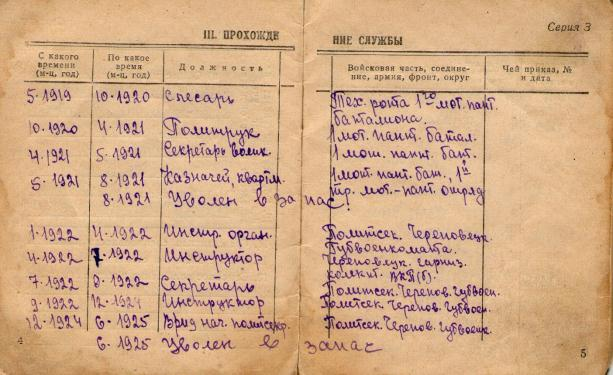 Серия 3
III. ПРОХОЖДЕ НИЕ СЛУЖБЫ
С какого времени (м-ц, год) По какое время (м-ц, год) Должность Войсковая часть, соединение, армия, фронт, округ Чей приказ, № и дата
5·1919 10·1920 Слесарь Тех. рота 1го мот. понт.
баталиона.
10.1920 4·1921 Политрук 1 мот. понт. батал.
4.1921 5·1921 Секретарь 1 мот. понт. бат.
5·1921 8·1921 Казначей, квартм. 1 мот. понт. бат. 1й
тр. мот.-понт. отряд
8·1921 Уволен в запас.
1·1922 4·1922 Инстр. орган. Политсек. Череповецк.
Губвоенкомата.
4·1922 7·1922 Инструктор Череповецк. гарниз.
РКП(б).
7·1922 8·1922 Секретарь Политсек. Черепов. Губвоен.
9·1922 12·1924 Инструктор Политсек. Черепов. Губвоен.
12·1924 6·1925 Врид нач. политсекр. Политсек. Черепов. Губвоен.
6·1925 Уволен в запас
4
5